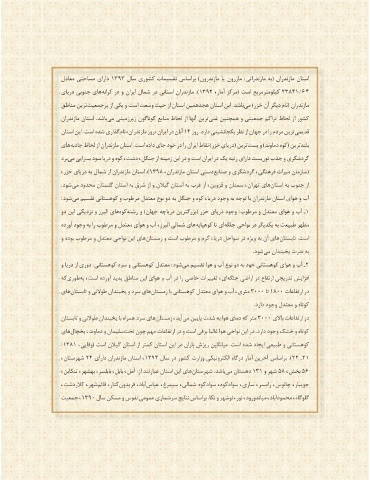 استان مازندران (به مازندرانی: مازرون یا مازندرون) براساس تقسیمات کشوری سال ۱۳۹۳ دارای مساحتی معادل
۲۳۸۴۱/۶۴ کیلومترمربع است (مرکز آمار، ۱۳۹۲). مازندران استانی در شمال ایران و در کرانه‌های جنوبی دریای
مازندران (نام دیگر آن خزر) می‌باشد. این استان هجدهمین استان از حیث وسعت است و یکی از پرجمعیت‌ترین مناطق
کشور از لحاظ تراکم جمعیتی و همچنین غنی‌ترین آنها از لحاظ منابع گوناگون زیرزمینی می‌باشد. استان مازندران
قدیمی ترین مرده را در جهان از نظر یکجانشینی دارد. روز ۱۴ آبان در ایران، روز مازندران نام‌گذاری شده است. این استان
بلندترین (کوه دماوند) و پست‌ترین (دریای خزر) نقاط ایران را در خود جای داده است. استان مازندران از لحاظ جاذبه‌های
گردشگری و جذب توریست دارای رتبه یک در ایران است و در این زمینه از جنگل، دشت، کوه و دریا سود سرایی می‌برد
(سازمان میراث فرهنگی، گردشگری و صنایع‌دستی استان مازندران، ۱۳۹۸). استان مازندران از شمال به دریای خزر،
از جنوب به استان‌های تهران، سمنان و قزوین، از غرب به استان گیلان و از شرق به استان گلستان محدود می‌شود.
آب و هوای استان مازندران با توجه به وجود دریا، کوه و جنگل به دو نوع معتدل مرطوب و کوهستانی تقسیم می‌شود:
۱. آب و هوای معتدل و مرطوب: وجود دریای خزر (بزرگترین دریاچه جهان) و رشته‌کوه‌های البرز و نزدیکی این دو
مظهر طبیعت به یکدیگر بر نواحی جلگه‌ای تا کوهپایه‌های شمالی البرز، آب و هوای معتدل و مرطوب را به وجود آورده
است. تابستان‌های آن به ویژه در سواحل دریا، گرم و مرطوب است و زمستان‌های این نواحی معتدل و مرطوب بوده و
به ندرت یخبندان می‌شود.
۲. آب و هوای کوهستانی خود به دو نوع آب و هوا تقسیم می‌شود: معتدل کوهستانی و سرد کوهستانی. دوری از دریا و
افزایش تدریجی ارتفاع در اراضی جلگه‌ای، تغییرات خاصی را در آب و هوای این مناطق پدید آورده است، به‌طوری‌که
در ارتفاعات ۱۸۰۰ تا ۳۰۰۰ متری، آب و هوای معتدل کوهستانی با زمستان‌های سرد و یخبندان طولانی و تابستان‌های
کوتاه و معتدل وجود دارد.
در ارتفاعات بالای ۳۰۰۰ متر که دمای هوا به شدت پایین می آید، زمستان‌های سرد همراه با یخبندان طولانی و تابستان
کوتاه و خشک وجود دارد. در این نواحی هوا غالبا برفی است و در ارتفاعات مهم چون تخت‌سلیمان و دماوند، یخچال‌های
کوهستانی و طبیعی ایجاد شده است. میانگین ریزش باران در این استان کمتر از استان گیلان است (وفایی، ۱۳۸۱:
۲۱، ۲۲). براساس آخرین آمار درگاه الکترونیکی وزارت کشور در سال ۱۳۹۴، استان مازندران دارای ۲۲ شهرستان،
۵۶ بخش، ۵۸ شهر و ۱۳۱ دهستان می‌باشد. شهرستان‌های این استان عبارتند از: آمل، بابل، بابلسر، بهشهر، تنکابن،
جویبار، چالوس، رامسر، ساری، سوادکوه، سوادکوه شمالی، سیمرغ، عباس‌آباد، فریدون‌کنار، قائمشهر، کلاردشت،
گلوگاه، محمودآباد، میاندورود، نور، نوشهر و نکا. براساس نتایج سرشماری عمومی نفوس و مسکن سال ۱۳۹۰، جمعیت